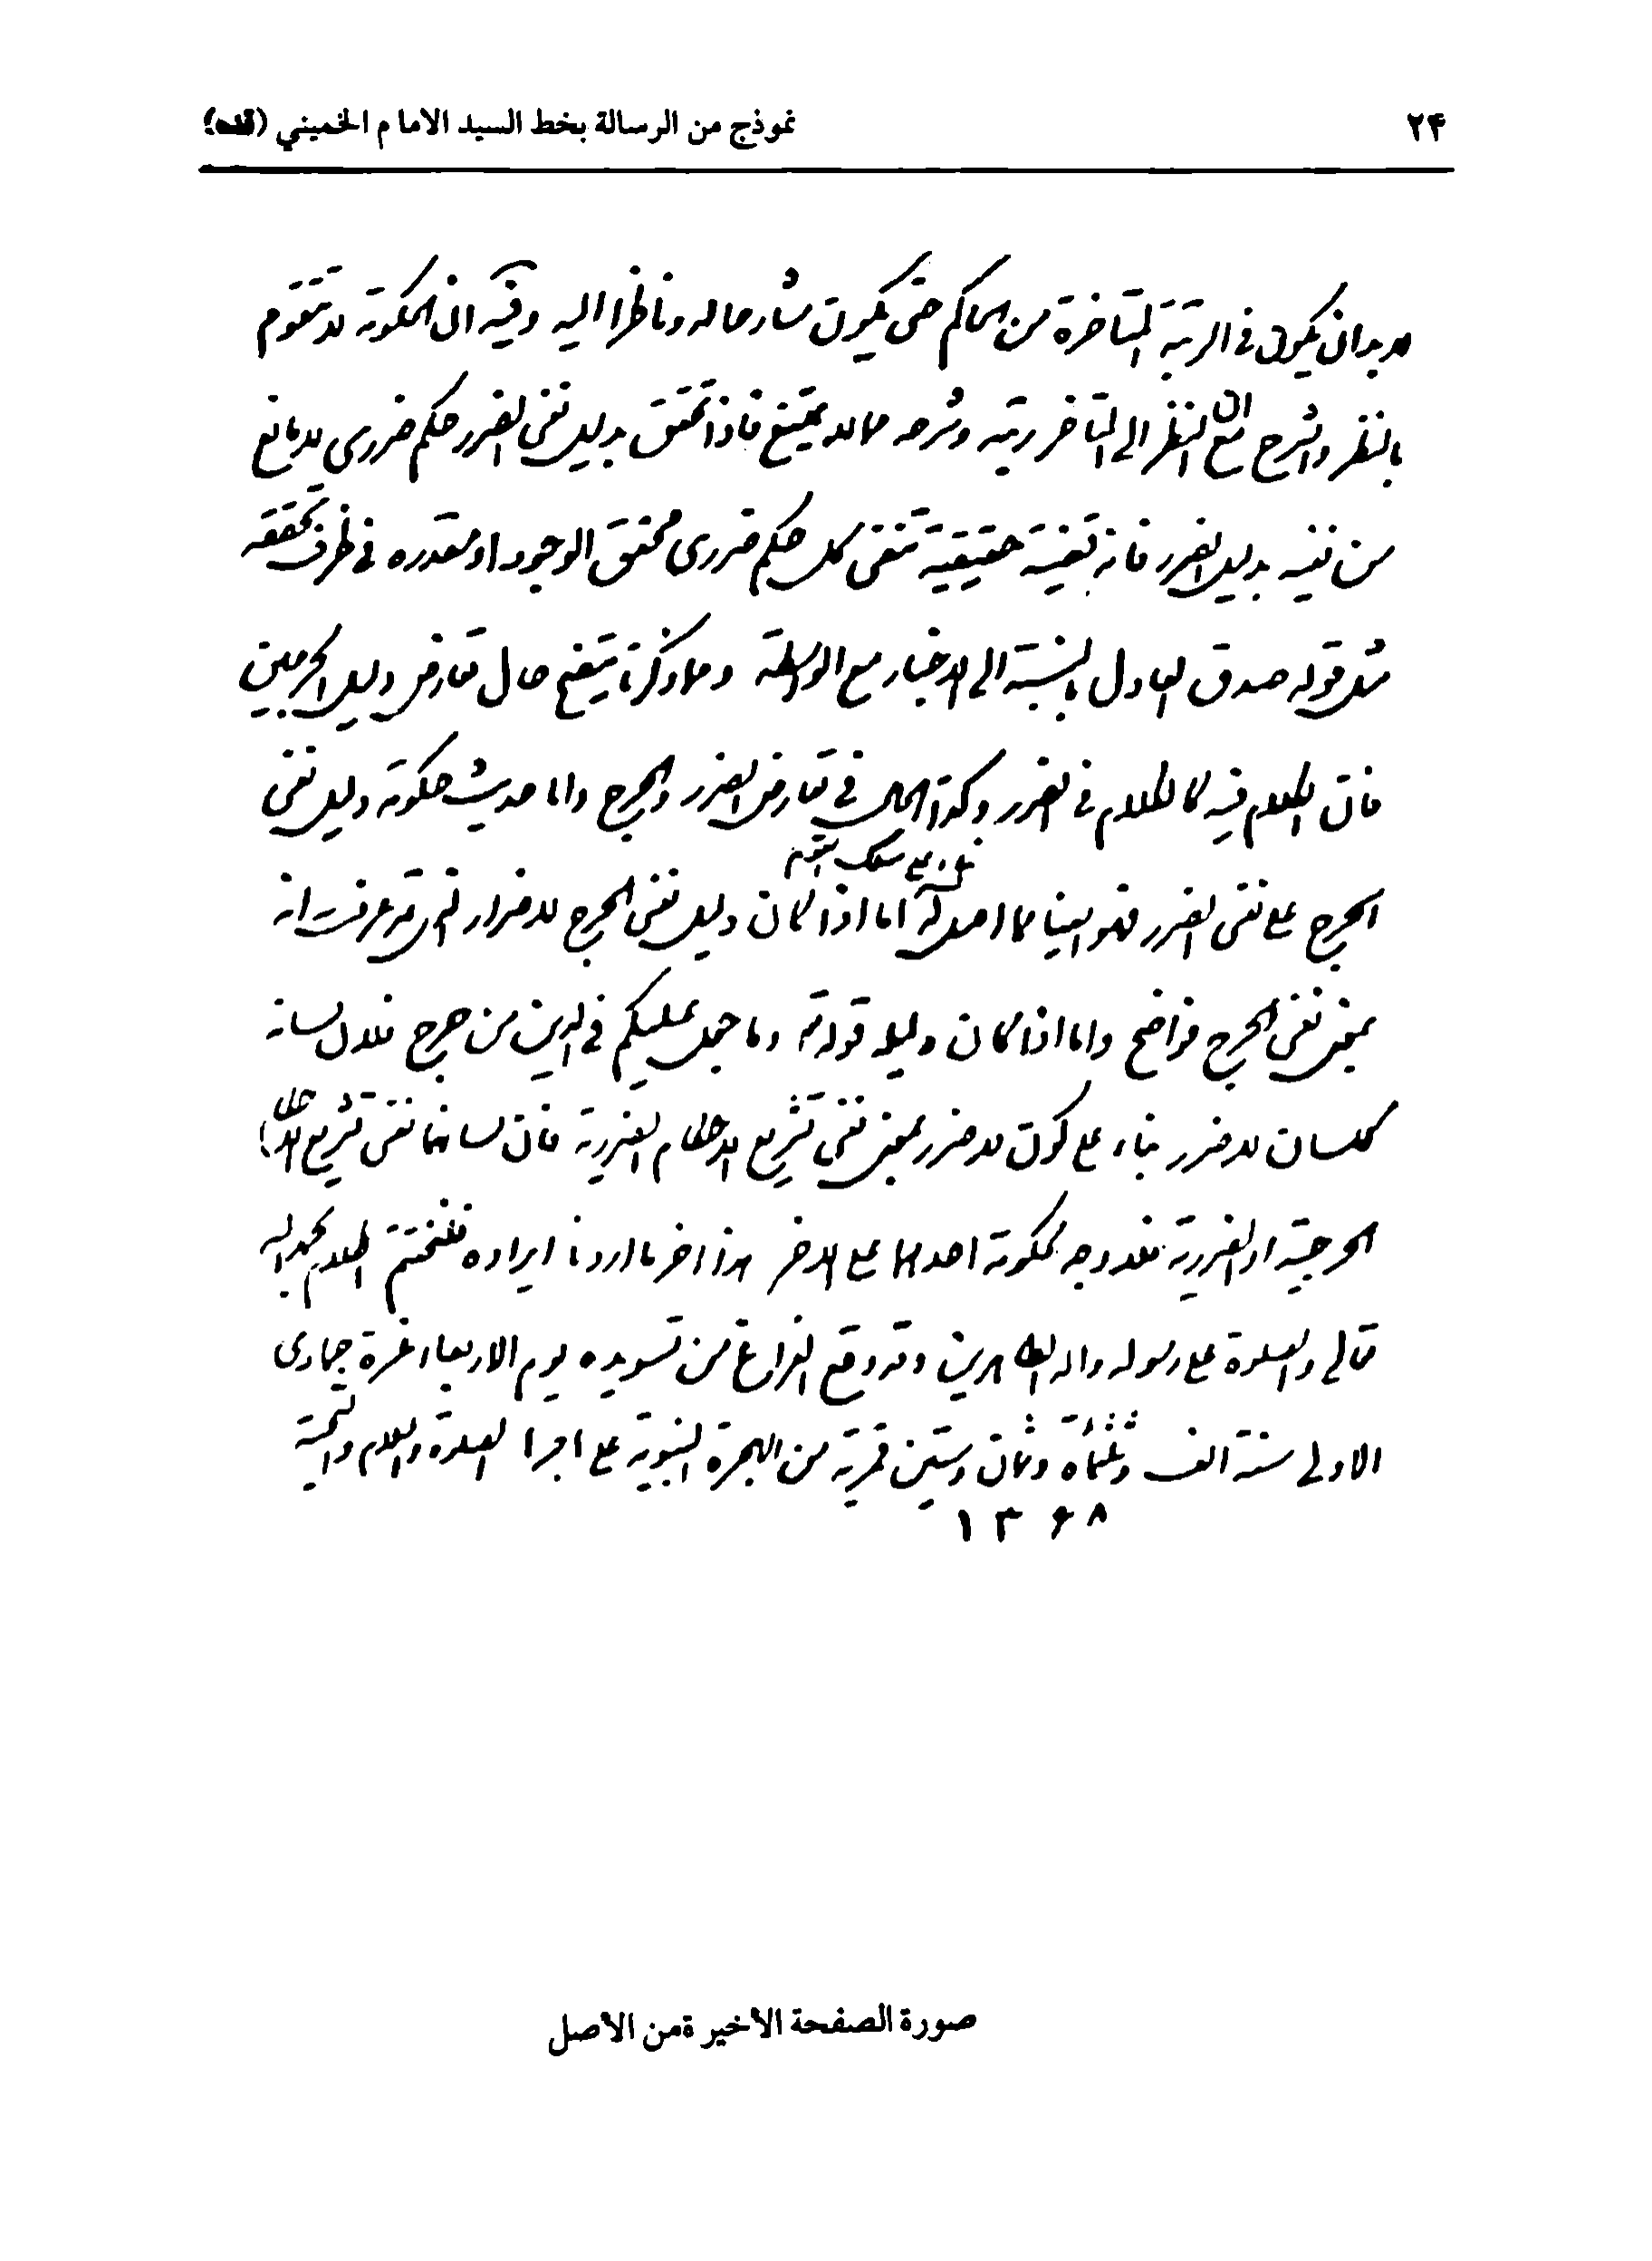 ۲۴
نموذج من الرسالة بخط السيد الامام الخميني (قده)
لا بد ان يكون في الرتبة المتاخرة من الحاكم حتى يكون شارحا له وناظرا اليه وفيه ان الحكومة لا تتقوم
بالنظر والشرح مع ان النظر الى المتاخر رتبة وشرحه مما لا يمتنع فاذا تحقق بدليل نفى الضرر حكم ضررى لا مانع
من نفيه بدليل الضرر فانه قضية حقيقية تنفى كل حكم ضررى محقق الوجود او مقدره في ظرف تحققه
مثل قوله صدق العادل بالنسبة الى الاخبار مع الواسطة ومما ذكرنا يتضح حال تعارض دليل الحرجين
فان الكلام فيه كالكلام في الضرر وكذا الحال في تعارض الضرر والحرج واما حديث حكومة دليل نفى
الحرج على نفى الضرر فهو ايضا مما لا اصل له اما اذا كان دليل نفى الحرج لا ضرار فقد عرفت انه
بناء على مسلك القوم
بمعنى نفى الحرج فواضح واما اذا كان دليله قوله تع وما جعل عليكم في الدين من حرج فلان لسانه
كلسان لا ضرر بناء على كون لا ضرر بمعنى نفى تشريع الاحكام الضررية فان لسانهما نفى تشريع الاحكام
الحرجية او الضررية فلا وجه لحكومة احدهما على الاخر هذا اخر ما اردنا ايراده فلنختتم الكلام بحمد الله
تعالى والصلوة على رسوله واله الطاهرين وقد وقع الفراغ من تسويده يوم الاربعاء غرة جمادى
الاولى سنة الف وثلثمأة وثمان وستين قمرية من الهجرة النبوية على هاجرها الصلوة والسلام والتحية
۱۳۶۸
صورة الصفحة الاخيرة من الاصل